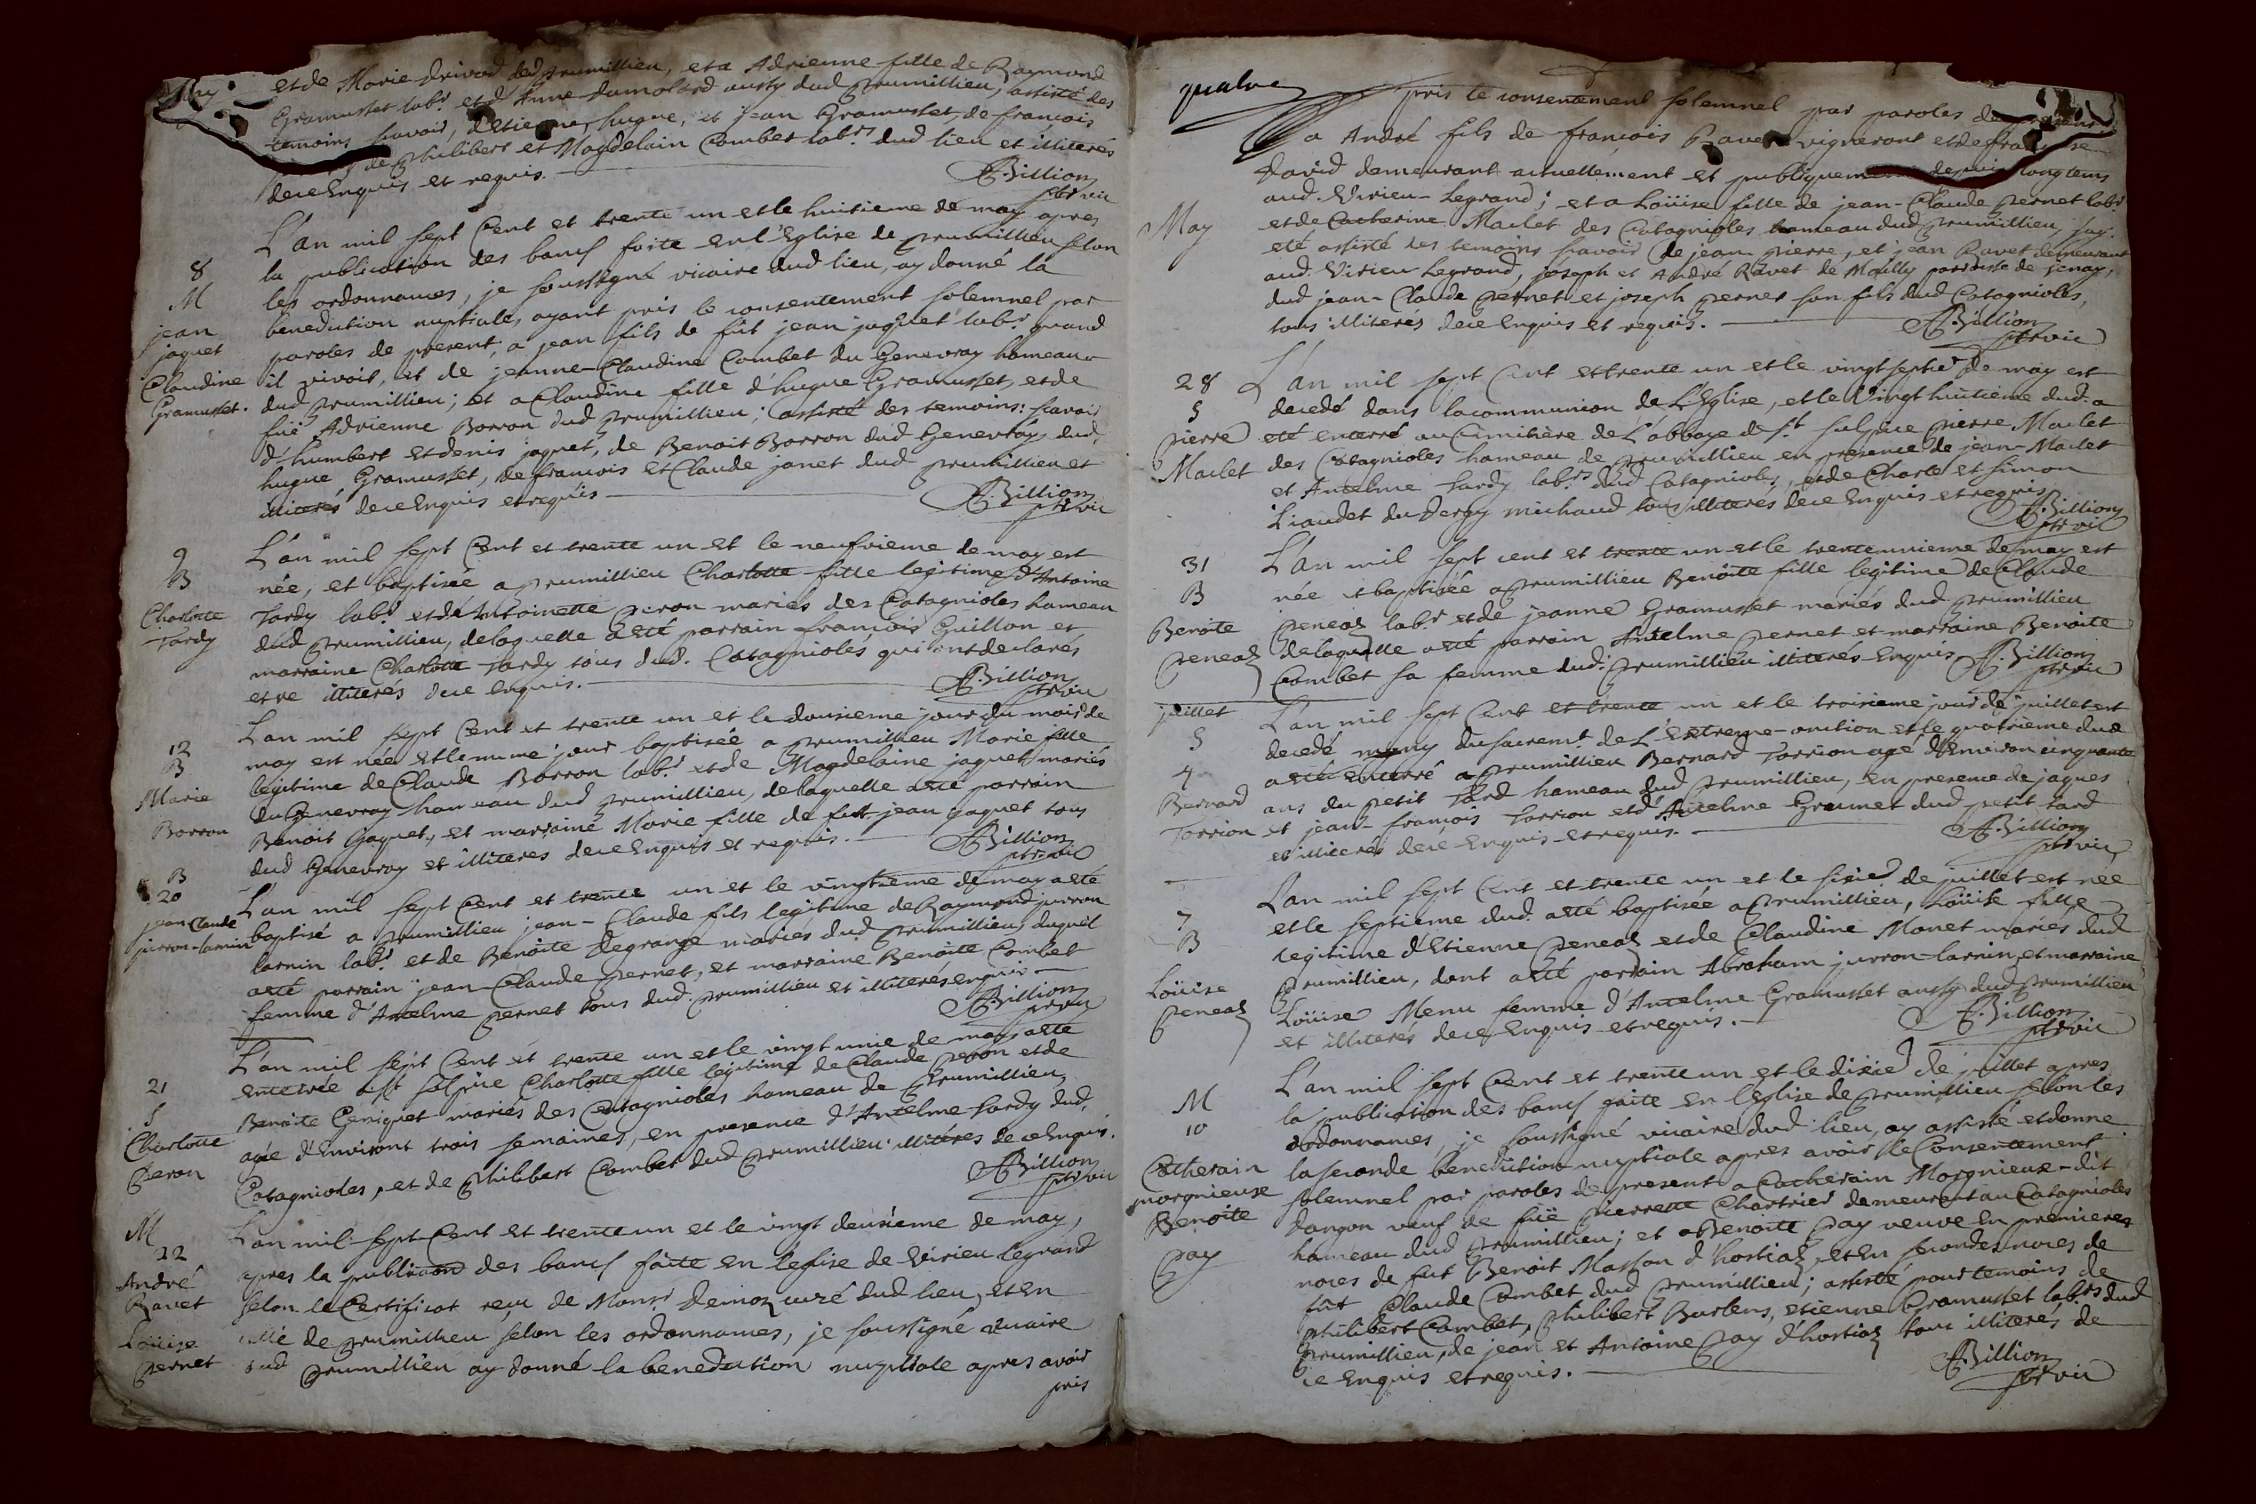 May
et de Marie drivod dud prumillieu, et a Adrienne fille de Raymond
Gramusset labr. et d'Anne dumolard aussy dud prumillieu, assisté des
temoins scavoir, d'Etienne, hugue, et jean Gramusset, de francois
de philibert et Magdelain Combet labrs. dud lieu et illiterés
de ce Enquis et requis.
A. Billion
ptr vic
8
M
jean
jaquet
Claudine
Gramusset.
L'an mil sept Cent et trente un et le huitieme de may apres
la publication des bancs faite en l'Eglise de prumillieu selon
les ordonnances, je soussigné vicaire dud lieu, ay donné la
benediction nuptiale, ayant pris le consentement solemnel par
paroles de present, a jean fils de fût jean jaquet labr. quand
il vivoit, et de jeanne-Claudine Combet du Genevray hameau
dud prumillieu; et a Claudine fille d'hugue Gramusset, et de
füe Adrienne Borron dud prumillieu; assisté des temoins: scavoir
d'humbert et denis jaquet, de Benoit Borron dud Genevray, dud.
hugue Gramusset, de francois et Claude janet dud prumillieu et
illiterés de ce Enquis et requis
A. Billion
ptr vic
9
B
Charlotte
Tardy
L'an mil sept Cent et trente un et le neufvieme de may est
née, et baptisée a prumillieu Charlotte fille legitime d'Antoine
Tardy labr. et de Antoinette peron mariés des Catagnioles hameau
dud prumillieu, de laquelle a eté parrain françois Guillon et
marraine Charlotte Tardy tous dud. Catagnioles qui ont declarés
etre illiterés de ce enquis.
A. Billion
ptr vic
12
B
Marie
Borron
L'an mil sept Cent et trente un et le dousieme jour du mois de
may est née et le meme jour baptisée a prumillieu Marie fille
legitime de Claude Borron labr. et de Magdelaine jaquet mariés
du Genevray hameau dud prumillieu, de laquelle a eté parrain
Benoit jaquet, et marraine Marie fille de fut jean jaquet tous
dud Genevray et illiteres de ce Enquis et requis.
A. Billion
ptr vic
B
20
jean Claude
jurron-larnin
L'an mil sept Cent et trente un et le vingtieme de may a eté
baptisé a prumillieu jean-Claude fils legitime de Raymond jurron
larnin labr. et de Benoite degrange mariés dud prumillieu, duquel
a eté parrain jean-Claude pernet, et marraine Benoite Combet
femme d'Antelme pernet tous dud. prumillieu et illiterés enquis
A. Billion
ptr vic
21
S
Charlotte
Peron
L'an mil sept Cent et trente un et le vingt unie de may a eté
enterrée a St. sulpice Charlotte fille legitime de Claude peron et de
Benoite Geniquet mariés des Catagnioles hameau de prumillieu,
agée d'Environt trois semaines, en presence d'Antelme Tardy dud.
Catagnioles, et de philibert Combet dud prumillieu illitéres de ce Enquis.
A. Billion
ptr vic
M
22
André
Ravet
Loüise
pernet
L'an mil sept Cent et trente un et le vingt deuxieme de may,
apres la publication des bancs faite en leglise de Virieu legrand
selon le Certificat reçu de Monsr. Demoz curé dud lieu, et en
celle de prumillieu selon les ordonnances, je soussigné vicaire
dud prumillieu ay donné la benediction nuptiale apres avoir
pris
quatre
pris le consentement solemnel par paroles de present
a André fils de françois Ravet vigneront et de francoise
David demeurant actuellement et publiquement depuis longtems
aud. Virieu-Legrand; et a Loüise fille de jean-Claude pernet labr.
May
et de Catherine Maclet des Catagnioles hameau dud prumillieu j'ay
eté assisté des temoins scavoir de jean pierre, et jean Ravet demeurant
aud. Virieu legrand, joseph et André Ravet de Moilly parroisse de
dud jean-Claude pernet et joseph pernet son fils dud Catagnioles,
tous illiterés de ce Enquis et requis.
A. Billion
ptr vic
28
S
pierre
Maclet
L'an mil sept Cent et trente un et le vingt septie de may est
decedé dans la communion de L'Eglise, et le vingt huitieme dud. a
eté enterré au Cimitière de L'abbaye de St. sulpice pierre Maclet
des Catagnioles hameau de prumillieu en presence de jean-Maclet
et Antelme Tardy labrs. dud Catagnioles, et de Charle et simon
Liaudet du Vergy michaud tous illiterés de ce Enquis et requis
A. Billion
ptr vic
31
B
Benoite
peneaz
L'an mil sept cent et trente un et le trente unieme de may est
née et baptisée a prumillieu Benoite fille legitime de Claude
peneaz labr. et de jeanne Gramusset mariés dud prumillieu
de laquelle a eté parrain Antelme pernet et marraine Benoite
Combet sa femme dud. prumillieu illiterés Enquis
A. Billion
ptr vic
juillet
S
4
Bernard
Torrion
L'an mil sept Cent et trente un et le troisieme jour de juillet est
decedé muny du sacremt. de L'Extreme-onction et le quatrieme dud
a eté enterré a prumillieu Bernard Torrion agé d'Environ cinquante
ans du petit Tard hameau dud prumillieu, en presence de jaques
et jean-francois Torrion et d'Antelme Grumet dud petit tard
et illiterés de ce Enquis et requis.
A. Billion
ptr vic
7
B
Loüise
peneaz
L'an mil sept Cent et trente un et le sixie de juillet est née
et le septieme dud. a eté baptisée a prumillieu, Loüise fille
legitime d'Etienne peneaz et de Claudine Monet mariés dud
prumillieu, dont a eté parrain Abraham jurron-larnin, et marraine
Loüise Menu femme d'Antelme Gramusset aussy dud prumillieu
et illiterés de ce Enquis et requis.
A. Billion
ptr vic
M
10
Catherain
morgnieuse
Benoite
pay
L'an mil sept Cent et trente un et le dixie de juillet apres
la publication des bancs faite en l'Eglise de prumillieu selon les
ordonnances, je soussigné vicaire dud lieu, ay assisté et donné
la seconde benediction nuptiale apres avoir le Consentement
solemnel par paroles de present a Catherain Morgnieuse-dit
dangon veuf de füe pierrette Chartrier demeurent au Catagnioles
hameau dud prumillieu; et a Benoite pay veuve en premieres
noces de fut Benoit Masson d'hostiaz, et en secondes noces de
fût Claude Combet dud prumillieu; assisté pour temoins de
philibert Combet, philibert Burlens, etienne Gramusset labrs dud
prumillieu, de jean et Antoine pay d'hostiaz tous illiterés de
ce Enquis et requis.
A. Billion
ptr vic